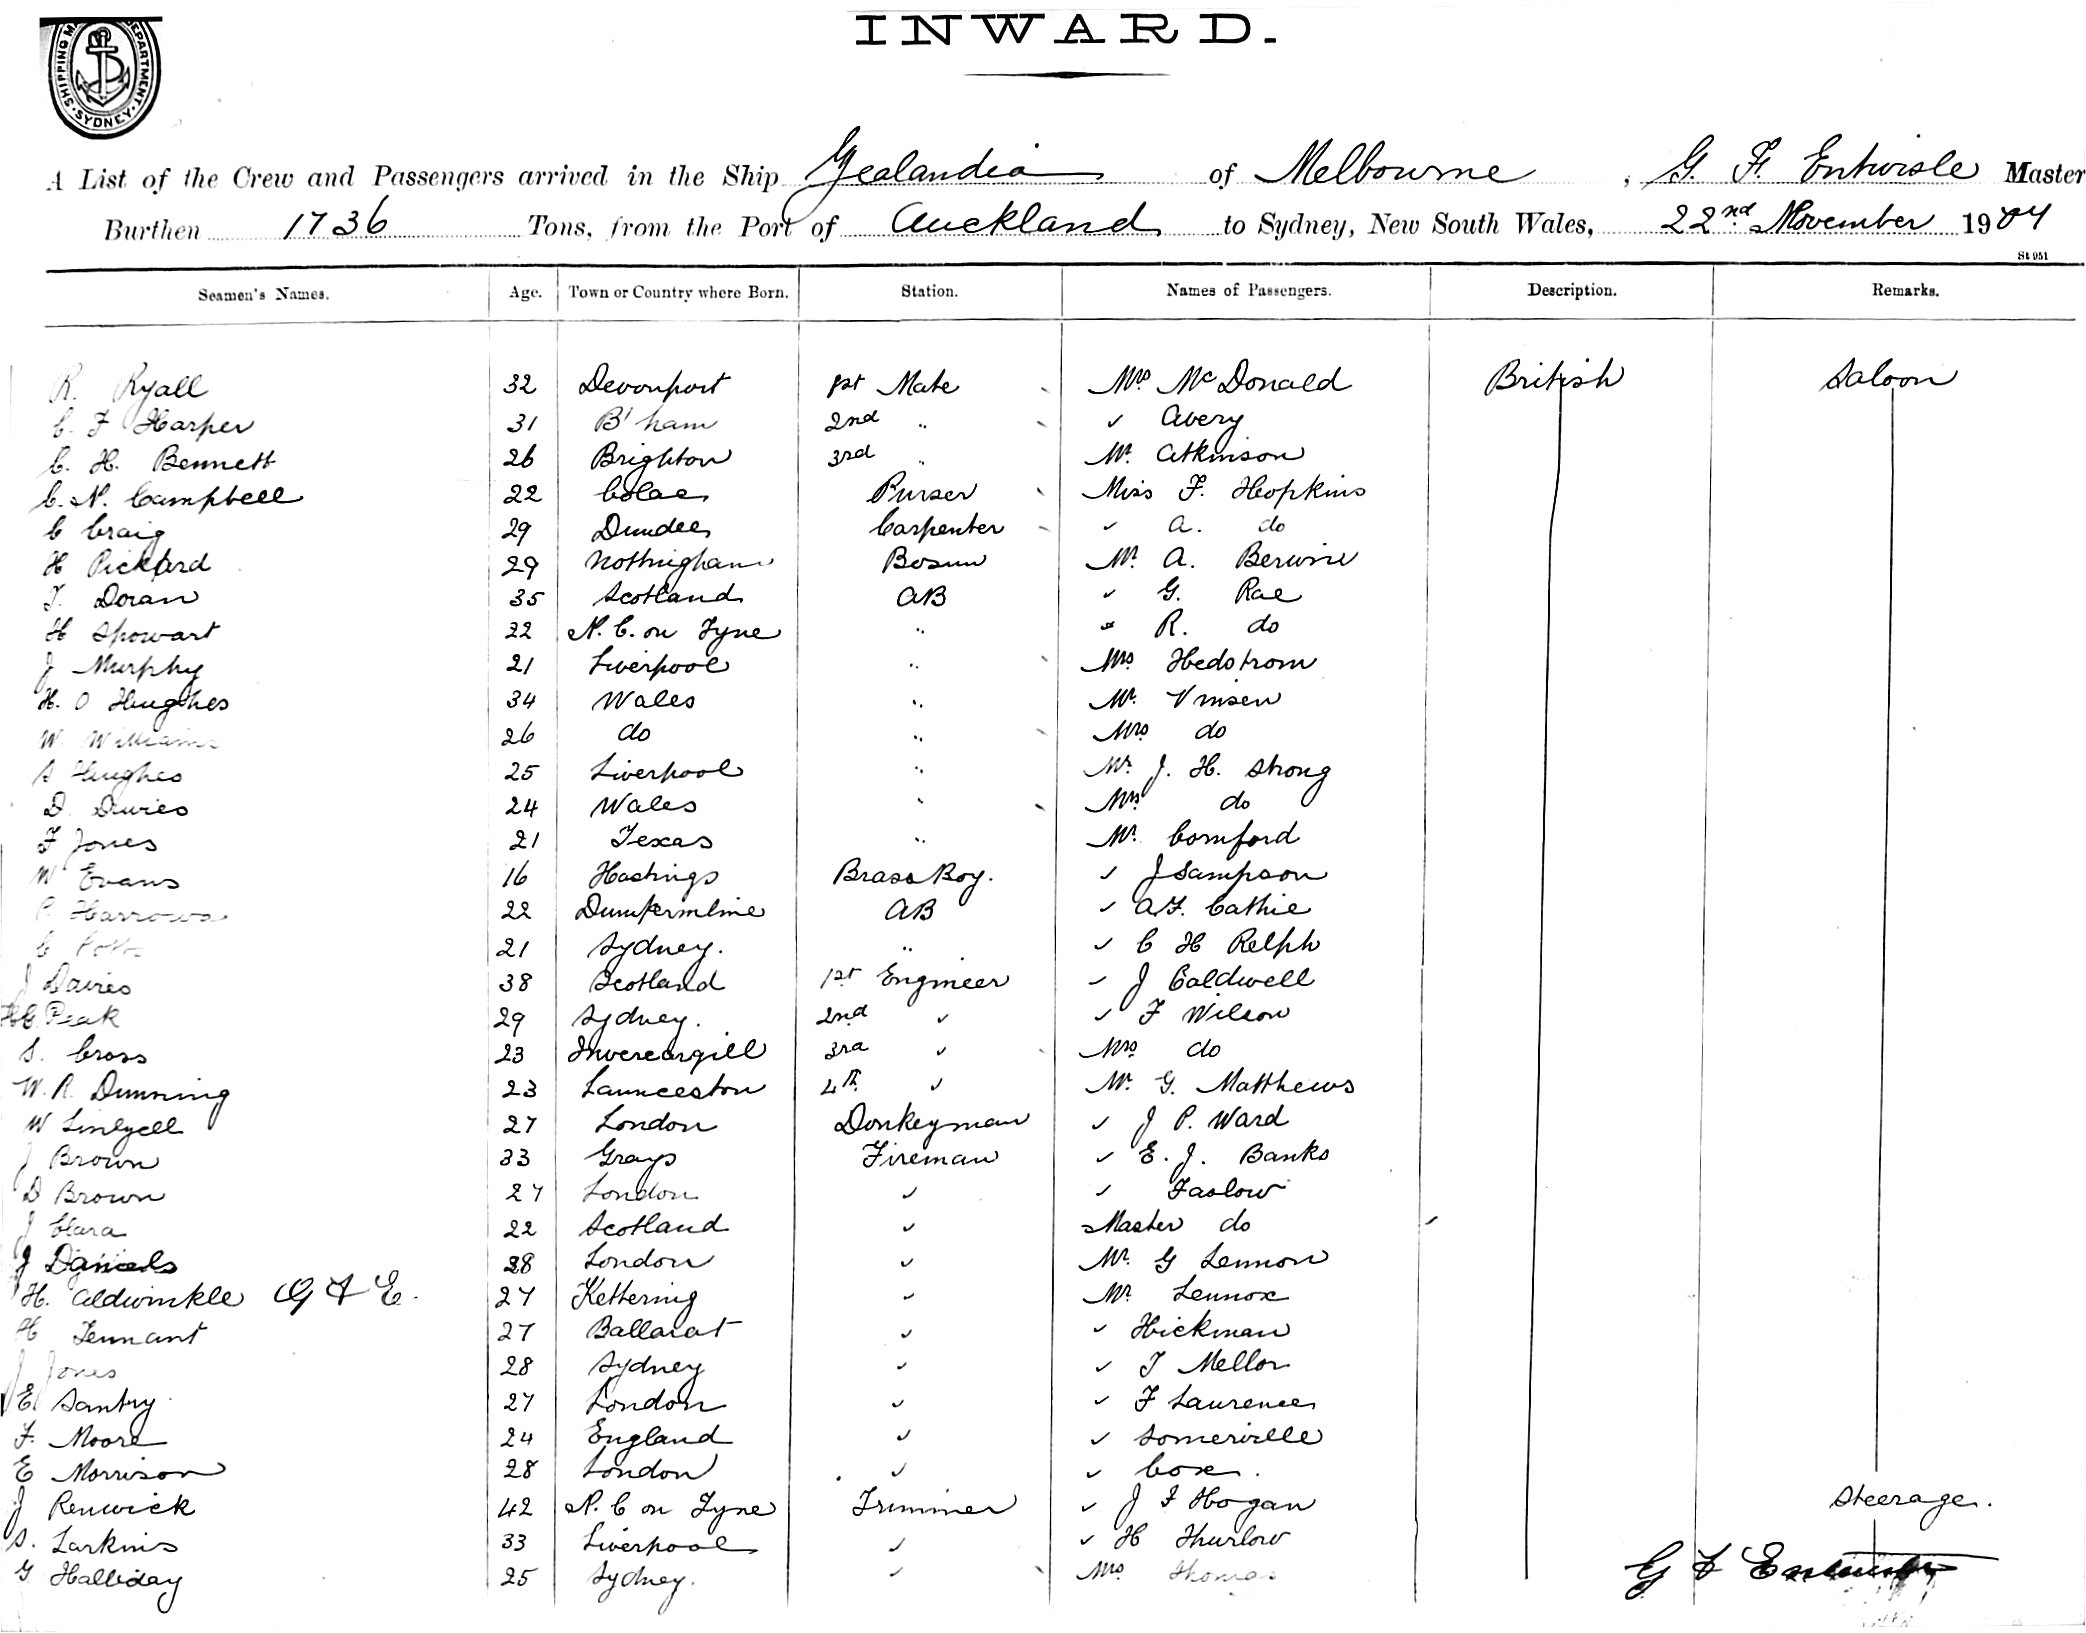 SHIPPING M DEPARTMENT. SYDNEY
INWARD.
A List of the Crew and Passengers arrived in the Ship Zealandia of Melbourne, G. F. Entwisle Master
Burthen 1736 Tons, from the Port of Auckland to Sydney, New South Wales, 22nd November 1904
St 951
Seamen's Names. Age. Town or Country where Born. Station. Names of Passengers. Description. Remarks.
R. Ryall 32 Devonport 1st Mate Mrs McDonald British Saloon
C. F Harper 31 B'ham 2nd " ✓ Avery
C. H. Bennett 26 Brighton 3rd " Mr. Atkinson
C. N. Campbell 22 Colac Purser Miss F. Hopkins
C Craig 29 Dundee Carpenter ✓ A. do
H Pickard 29 Nottingham Bosun Mr. A. Berwin
T. Doran 35 Scotland AB ✓ G. Rae
H Showart 22 N. C. on Tyne " " R. do
J Murphy 21 Liverpool " Mrs Hedstrom
H. O Hughes 34 Wales " Mr. Vinsen
W. Williams 26 do " Mrs do
S Hughes 25 Liverpool " Mr. J. H. Strong
D. Davies 24 Wales " Mrs do
F Jones 21 Texas " Mr. Cornford
W Evans 16 Hastings Brass Boy. ✓ J Sampson
P. Harrowa 22 Dunfermline AB ✓ A. F. Cathie
C Potts 21 Sydney. " ✓ C H Relph
J Davies 38 Scotland 1st Engineer ✓ J Caldwell
H C Peak 29 Sydney. 2nd ✓ ✓ F Wilson
S. Cross 23 Invercargill 3rd ✓ Mrs do
W. R. Dunning 23 Launceston 4th ✓ Mr. G. Matthews
W Linlyell 27 London Donkeyman ✓ J P. Ward
J Brown 33 Grays Fireman ✓ E. J. Banks
D Brown 27 London ✓ ✓ Faslow
J Clara 22 Scotland ✓ Master do
J Daniels 28 London ✓ Mr. G Lennon
H. Aldwinkle G F E. 27 Kettering ✓ Mr. Lennox
H Tennant 27 Ballarat ✓ ✓ Hickman
J Jones 28 Sydney ✓ ✓ T Mellor
E Santry. 27 London ✓ ✓ F Laurence
F. Moore 24 England ✓ ✓ Somerville
E Morrison 28 London ✓ ✓ Cox.
J Renwick 42 N. C on Tyne Trimmer ✓ J F Hogan Steerage.
S. Larkins 33 Liverpool ✓ ✓ H Thurlow
G Halliday 25 Sydney. ✓ Mrs Thomas G F Entwisle